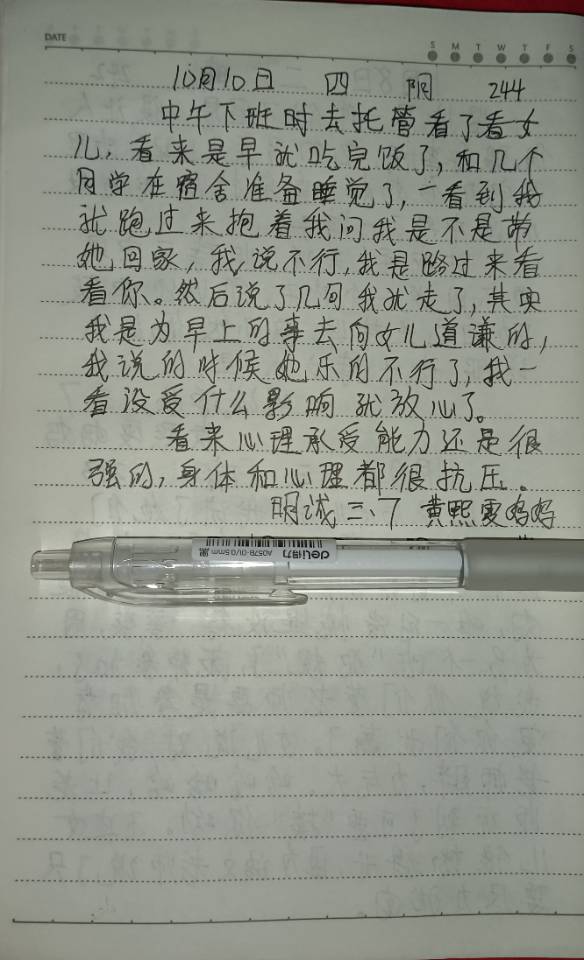 DATE
S M T W T F S
10月10日 四 阴 244
中午下班时去托管看了看女
儿，看来是早就吃完饭了，和几个
同学在宿舍准备睡觉了，一看到我
就跑过来抱着我问我是不是带
她回家，我说不行，我是路过来看
看你。然后说了几句我就走了，其实
我是为早上的事去向女儿道谦的，
我说的时候她乐的不行了，我一
看没受什么影响就放心了。
看来心理承受能力还是很
强的，身体和心理都很抗压。
明诚三、7 黄熙雯妈妈
deli得力 A0578-01/0.5mm 黑